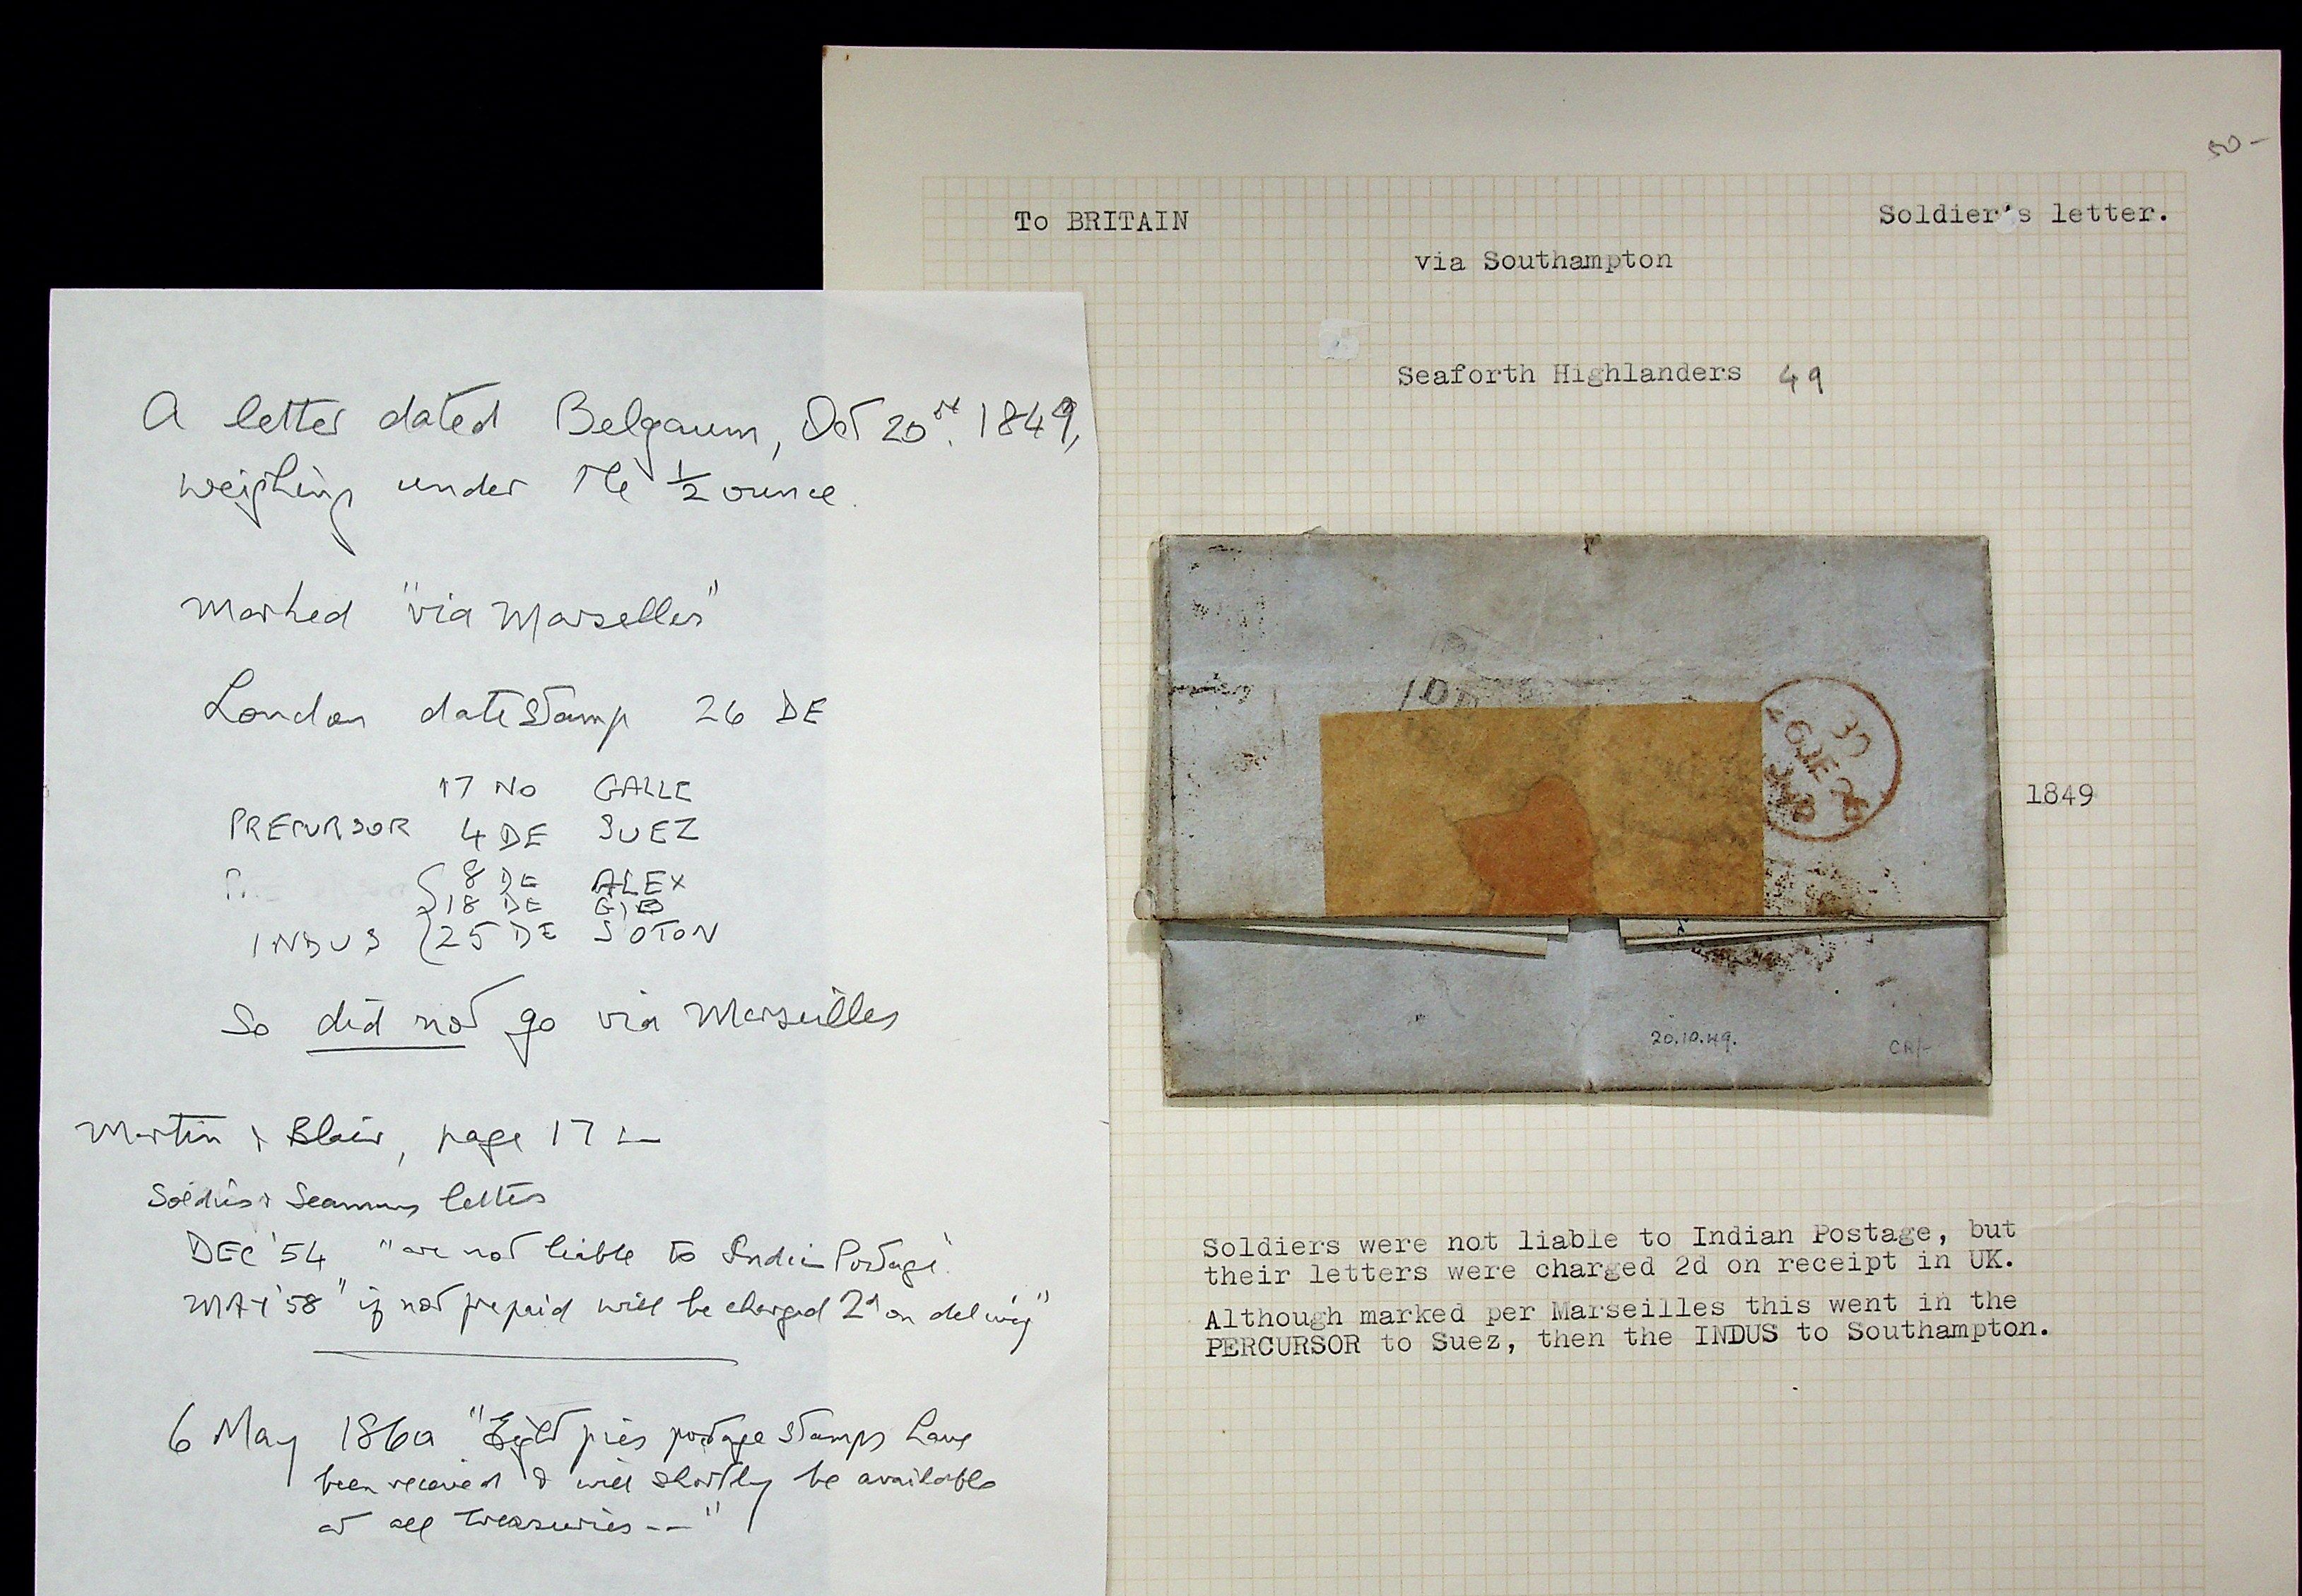 A letter dated Belgaum, Oct 20th. 1849,
weighing under the ½ ounce.
Marked "via Marselles"
London datestamp 26 DE
17 NO GALLE
PRECURSOR 4 DE SUEZ
8 DE ALEX
18 DE GIB
INDUS 25 DE S'OTON
So did not go via Marseilles
Martin & Blair, page 17
Soldiers & Seamens letters
DEC '54 "are not liable to Indian Postage"
MAY '58 "if not prepaid will be charged 2d on delivery"
6 May 1860 "Eight pies postage stamps have
been received & will shortly be available
at all treasuries--"
50-
To BRITAIN
Soldier's letter.
via Southampton
Seaforth Highlanders 49
1849
20.10.49.
Soldiers were not liable to Indian Postage, but
their letters were charged 2d on receipt in UK.
Although marked per Marseilles this went in the
PERCURSOR to Suez, then the INDUS to Southampton.